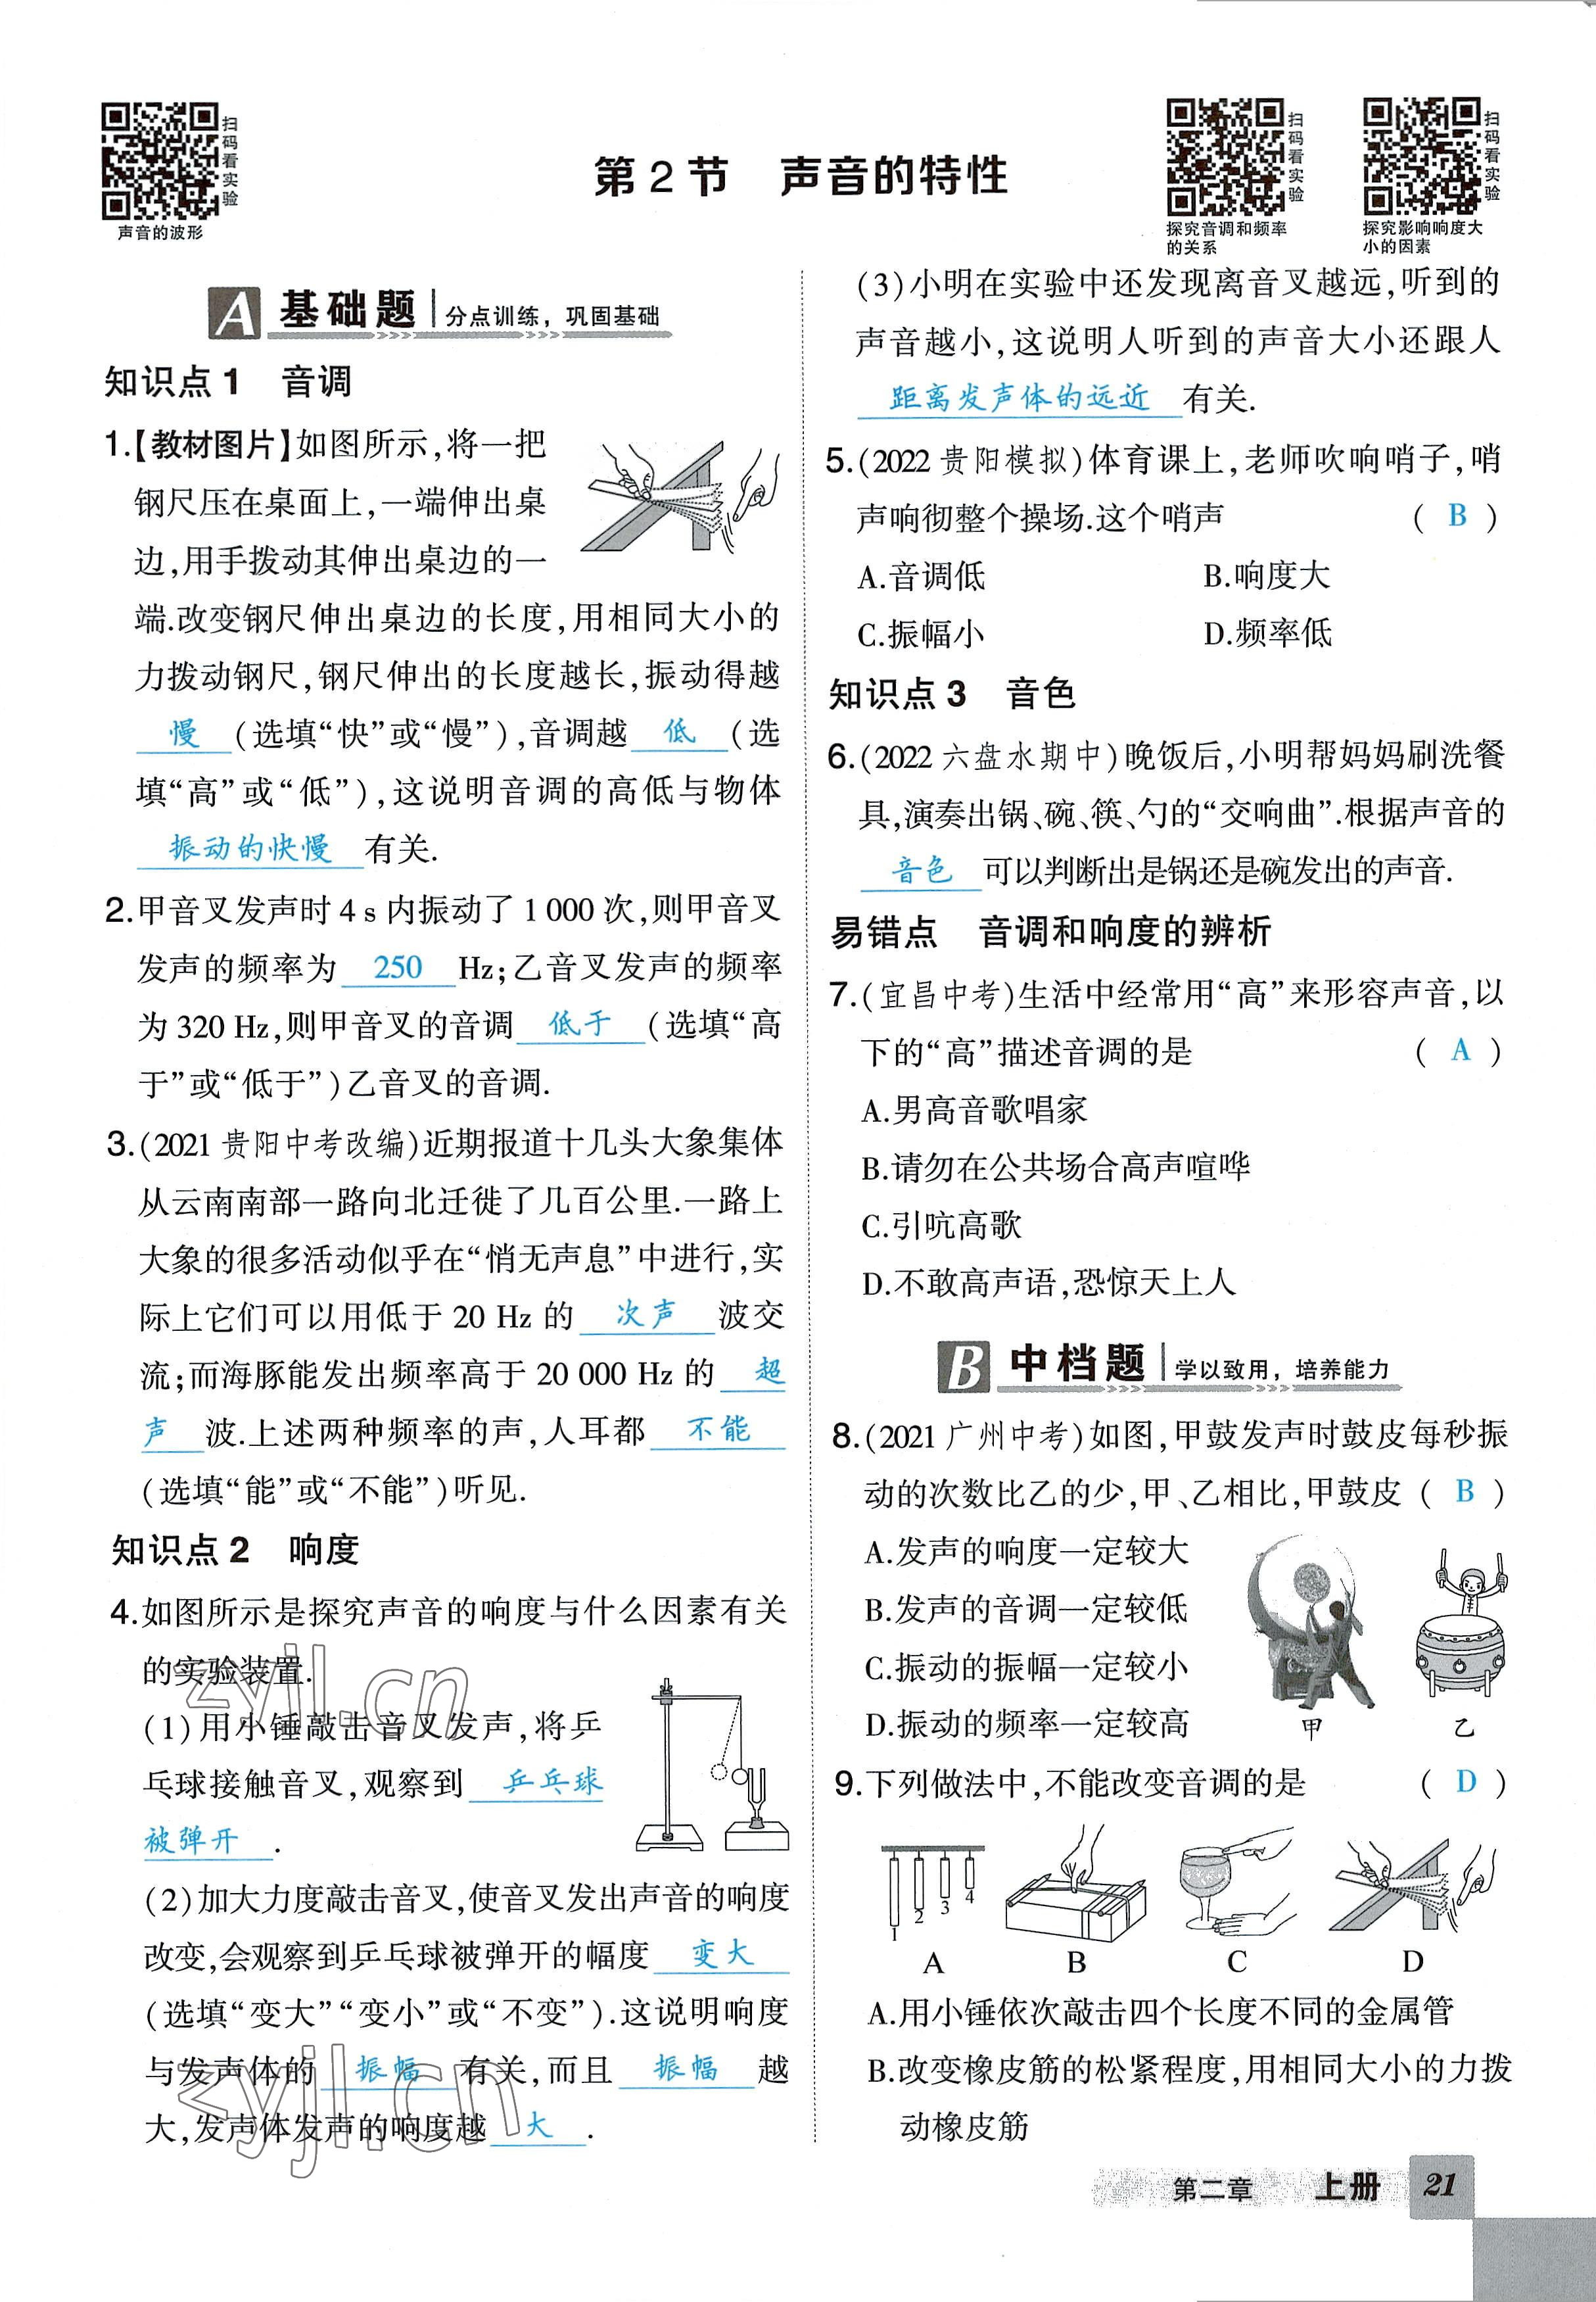 扫码看实验
声音的波形
第2节 声音的特性
扫码看实验
探究音调和频率
的关系
扫码看实验
探究影响响度大
小的因素
A 基础题 分点训练，巩固基础
知识点1 音调
1.【教材图片】如图所示,将一把
钢尺压在桌面上,一端伸出桌
边,用手拨动其伸出桌边的一
端.改变钢尺伸出桌边的长度,用相同大小的
力拨动钢尺,钢尺伸出的长度越长,振动得越
慢(选填“快”或“慢”),音调越 低 (选
填“高”或“低”),这说明音调的高低与物体
振动的快慢 有关.
2.甲音叉发声时4 s内振动了1 000次,则甲音叉
发声的频率为 250 Hz;乙音叉发声的频率
为320 Hz,则甲音叉的音调 低于 (选填“高
于”或“低于”)乙音叉的音调.
3.(2021贵阳中考改编)近期报道十几头大象集体
从云南南部一路向北迁徙了几百公里.一路上
大象的很多活动似乎在“悄无声息”中进行,实
际上它们可以用低于20 Hz的 次声 波交
流;而海豚能发出频率高于20 000 Hz的 超
声 波.上述两种频率的声,人耳都 不能
(选填“能”或“不能”)听见.
知识点2 响度
4.如图所示是探究声音的响度与什么因素有关
的实验装置.
(1)用小锤敲击音叉发声,将乒
乓球接触音叉,观察到 乒乓球
被弹开 .
(2)加大力度敲击音叉,使音叉发出声音的响度
改变,会观察到乒乓球被弹开的幅度 变大
(选填“变大”“变小”或“不变”).这说明响度
与发声体的 振幅 有关,而且 振幅 越
大,发声体发声的响度越 大 .
zyjl.cn
zyjl.cn
(3)小明在实验中还发现离音叉越远,听到的
声音越小,这说明人听到的声音大小还跟人
距离发声体的远近 有关.
5.(2022贵阳模拟)体育课上,老师吹响哨子,哨
声响彻整个操场.这个哨声 ( B )
A.音调低 B.响度大
C.振幅小 D.频率低
知识点3 音色
6.(2022六盘水期中)晚饭后,小明帮妈妈刷洗餐
具,演奏出锅、碗、筷、勺的“交响曲”.根据声音的
音色 可以判断出是锅还是碗发出的声音.
易错点 音调和响度的辨析
7.(宜昌中考)生活中经常用“高”来形容声音,以
下的“高”描述音调的是 ( A )
A.男高音歌唱家
B.请勿在公共场合高声喧哗
C.引吭高歌
D.不敢高声语,恐惊天上人
B 中档题 学以致用，培养能力
8.(2021广州中考)如图,甲鼓发声时鼓皮每秒振
动的次数比乙的少,甲、乙相比,甲鼓皮 ( B )
A.发声的响度一定较大
B.发声的音调一定较低
C.振动的振幅一定较小
D.振动的频率一定较高
甲 乙
9.下列做法中,不能改变音调的是 ( D )
1 2 3 4
A B C D
A.用小锤依次敲击四个长度不同的金属管
B.改变橡皮筋的松紧程度,用相同大小的力拨
动橡皮筋
第二章 上册 21